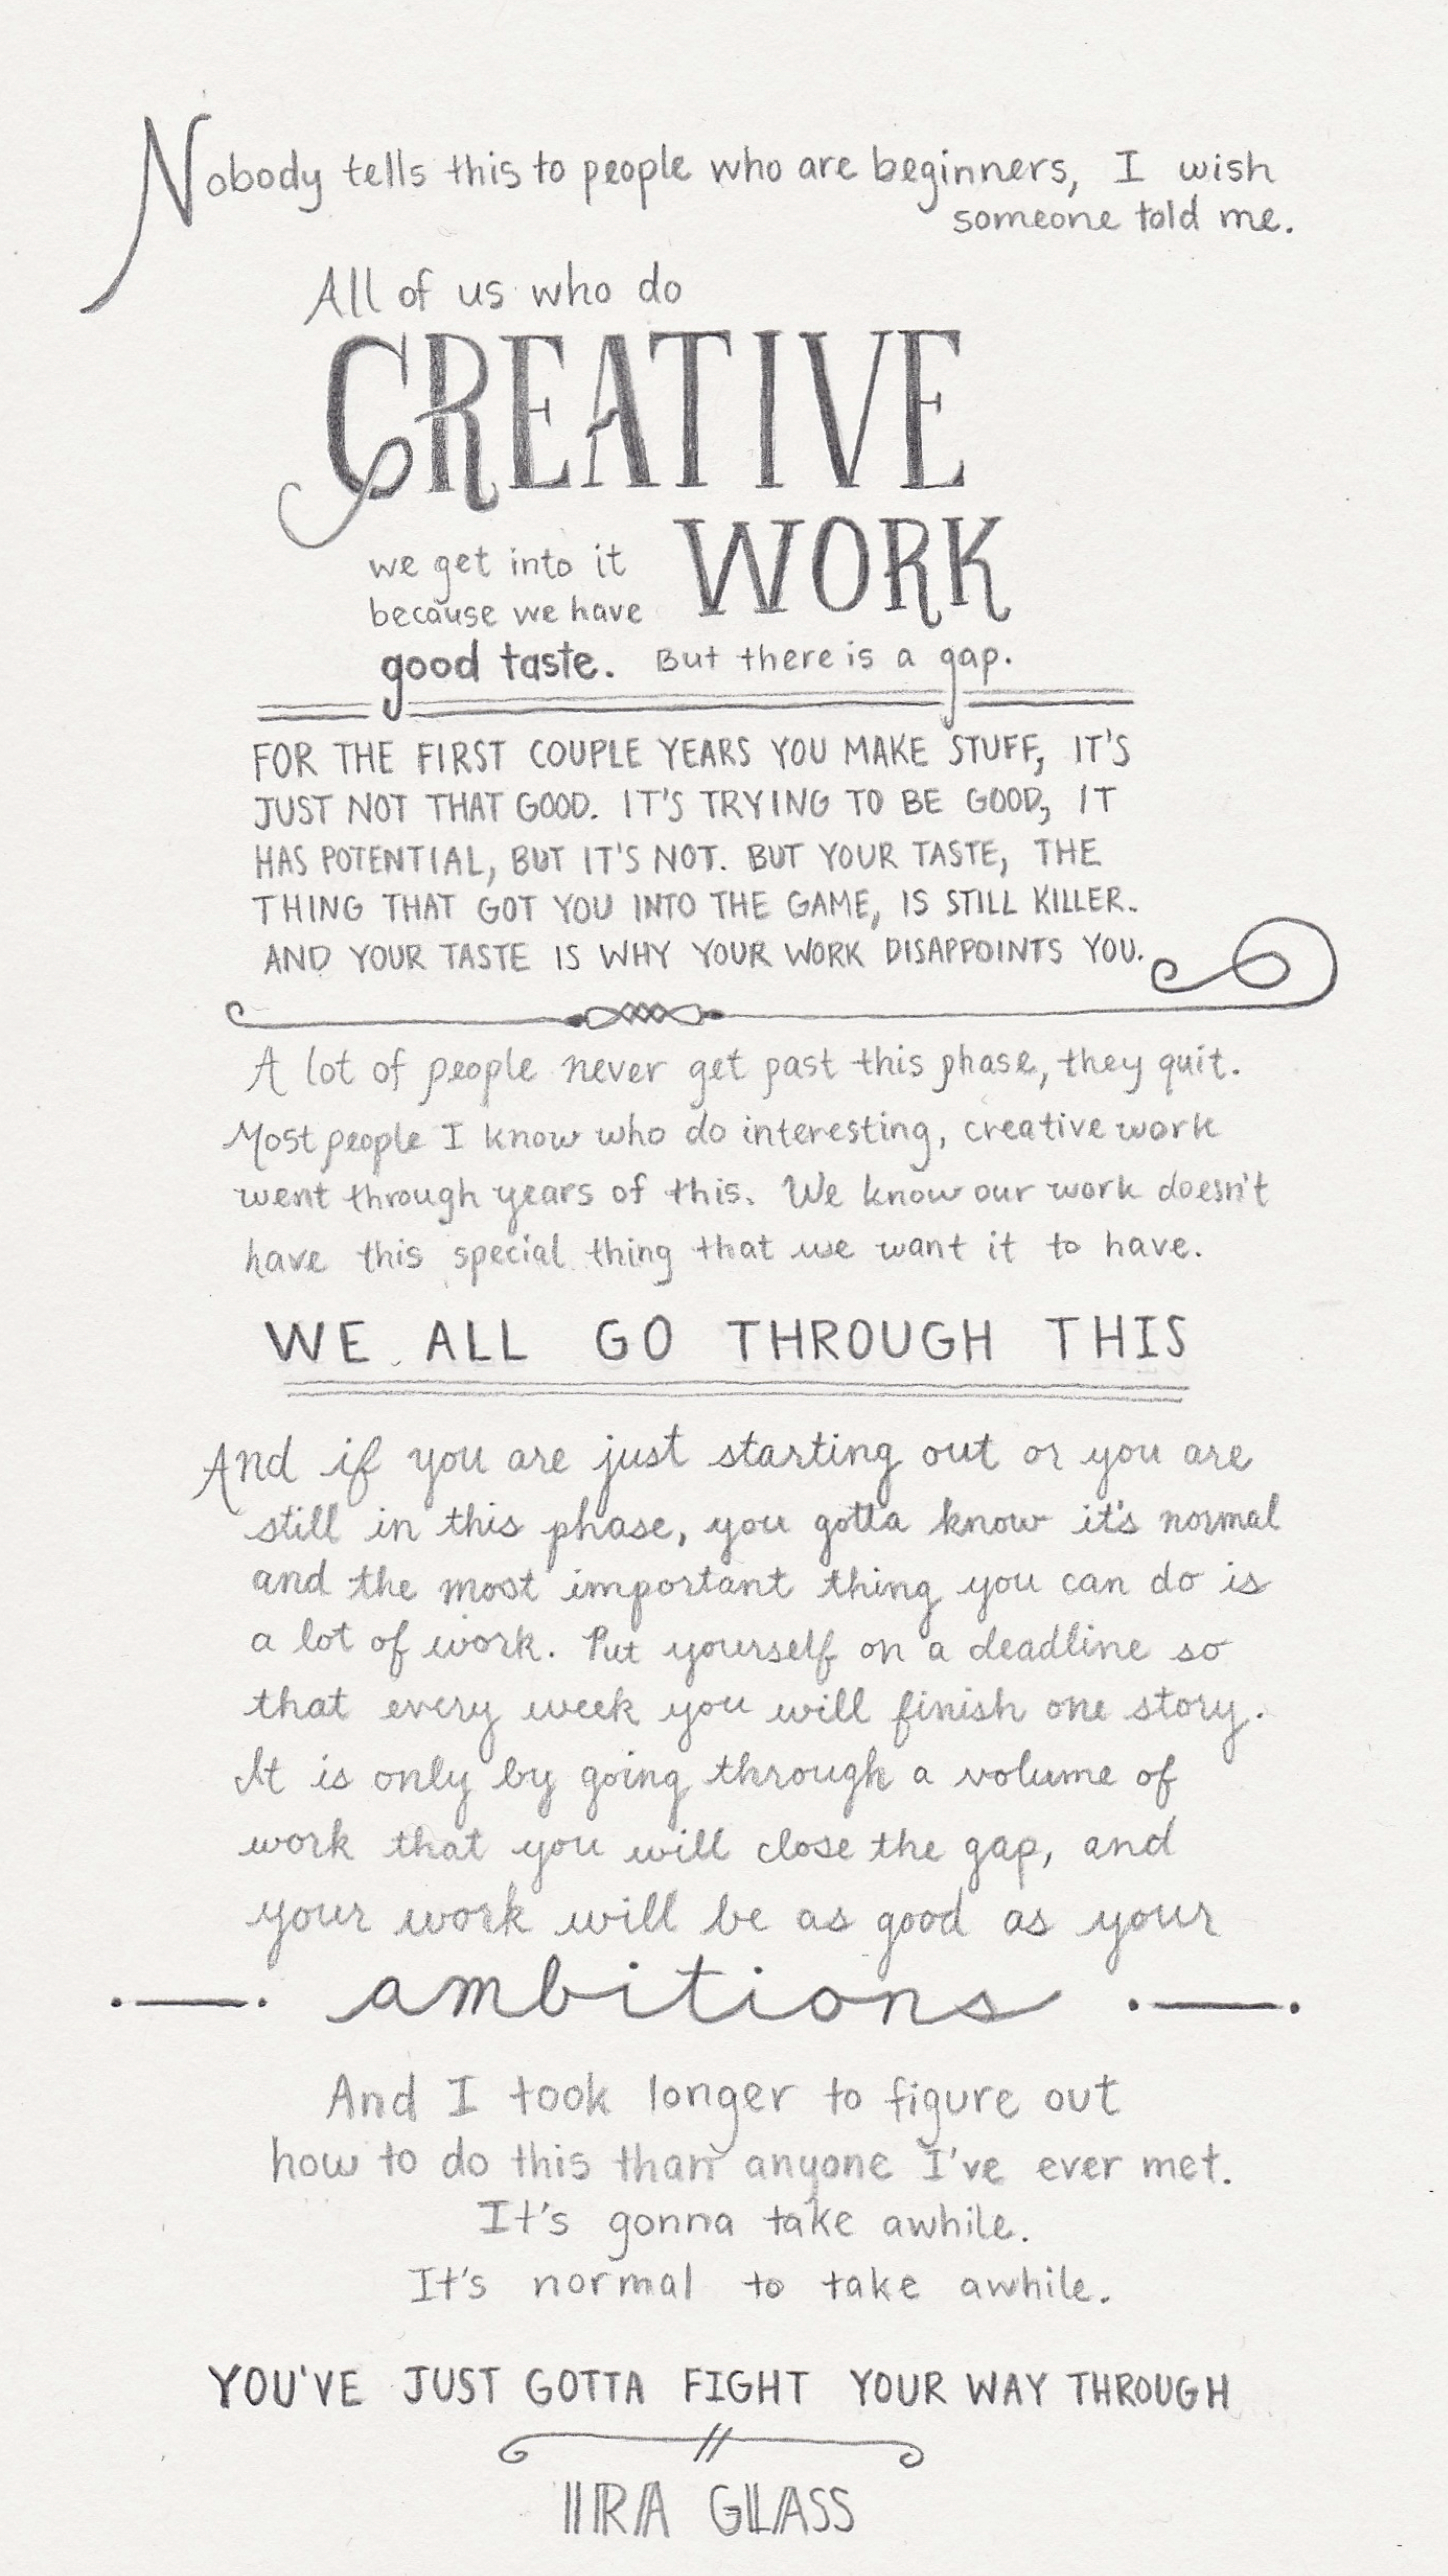 Nobody tells this to people who are beginners, I wish
someone told me.
All of us who do
CREATIVE
WORK
we get into it
because we have
good taste. But there is a gap.
FOR THE FIRST COUPLE YEARS YOU MAKE STUFF, IT'S
JUST NOT THAT GOOD. IT'S TRYING TO BE GOOD, IT
HAS POTENTIAL, BUT IT'S NOT. BUT YOUR TASTE, THE
THING THAT GOT YOU INTO THE GAME, IS STILL KILLER.
AND YOUR TASTE IS WHY YOUR WORK DISAPPOINTS YOU.
A lot of people never get past this phase, they quit.
Most people I know who do interesting, creative work
went through years of this. We know our work doesn't
have this special thing that we want it to have.
WE ALL GO THROUGH THIS
And if you are just starting out or you are
still in this phase, you gotta know it's normal
and the most important thing you can do is
a lot of work. Put yourself on a deadline so
that every week you will finish one story.
It is only by going through a volume of
work that you will close the gap, and
your work will be as good as your
ambitions
And I took longer to figure out
how to do this than anyone I've ever met.
It's gonna take awhile.
It's normal to take awhile.
YOU'VE JUST GOTTA FIGHT YOUR WAY THROUGH
IRA GLASS